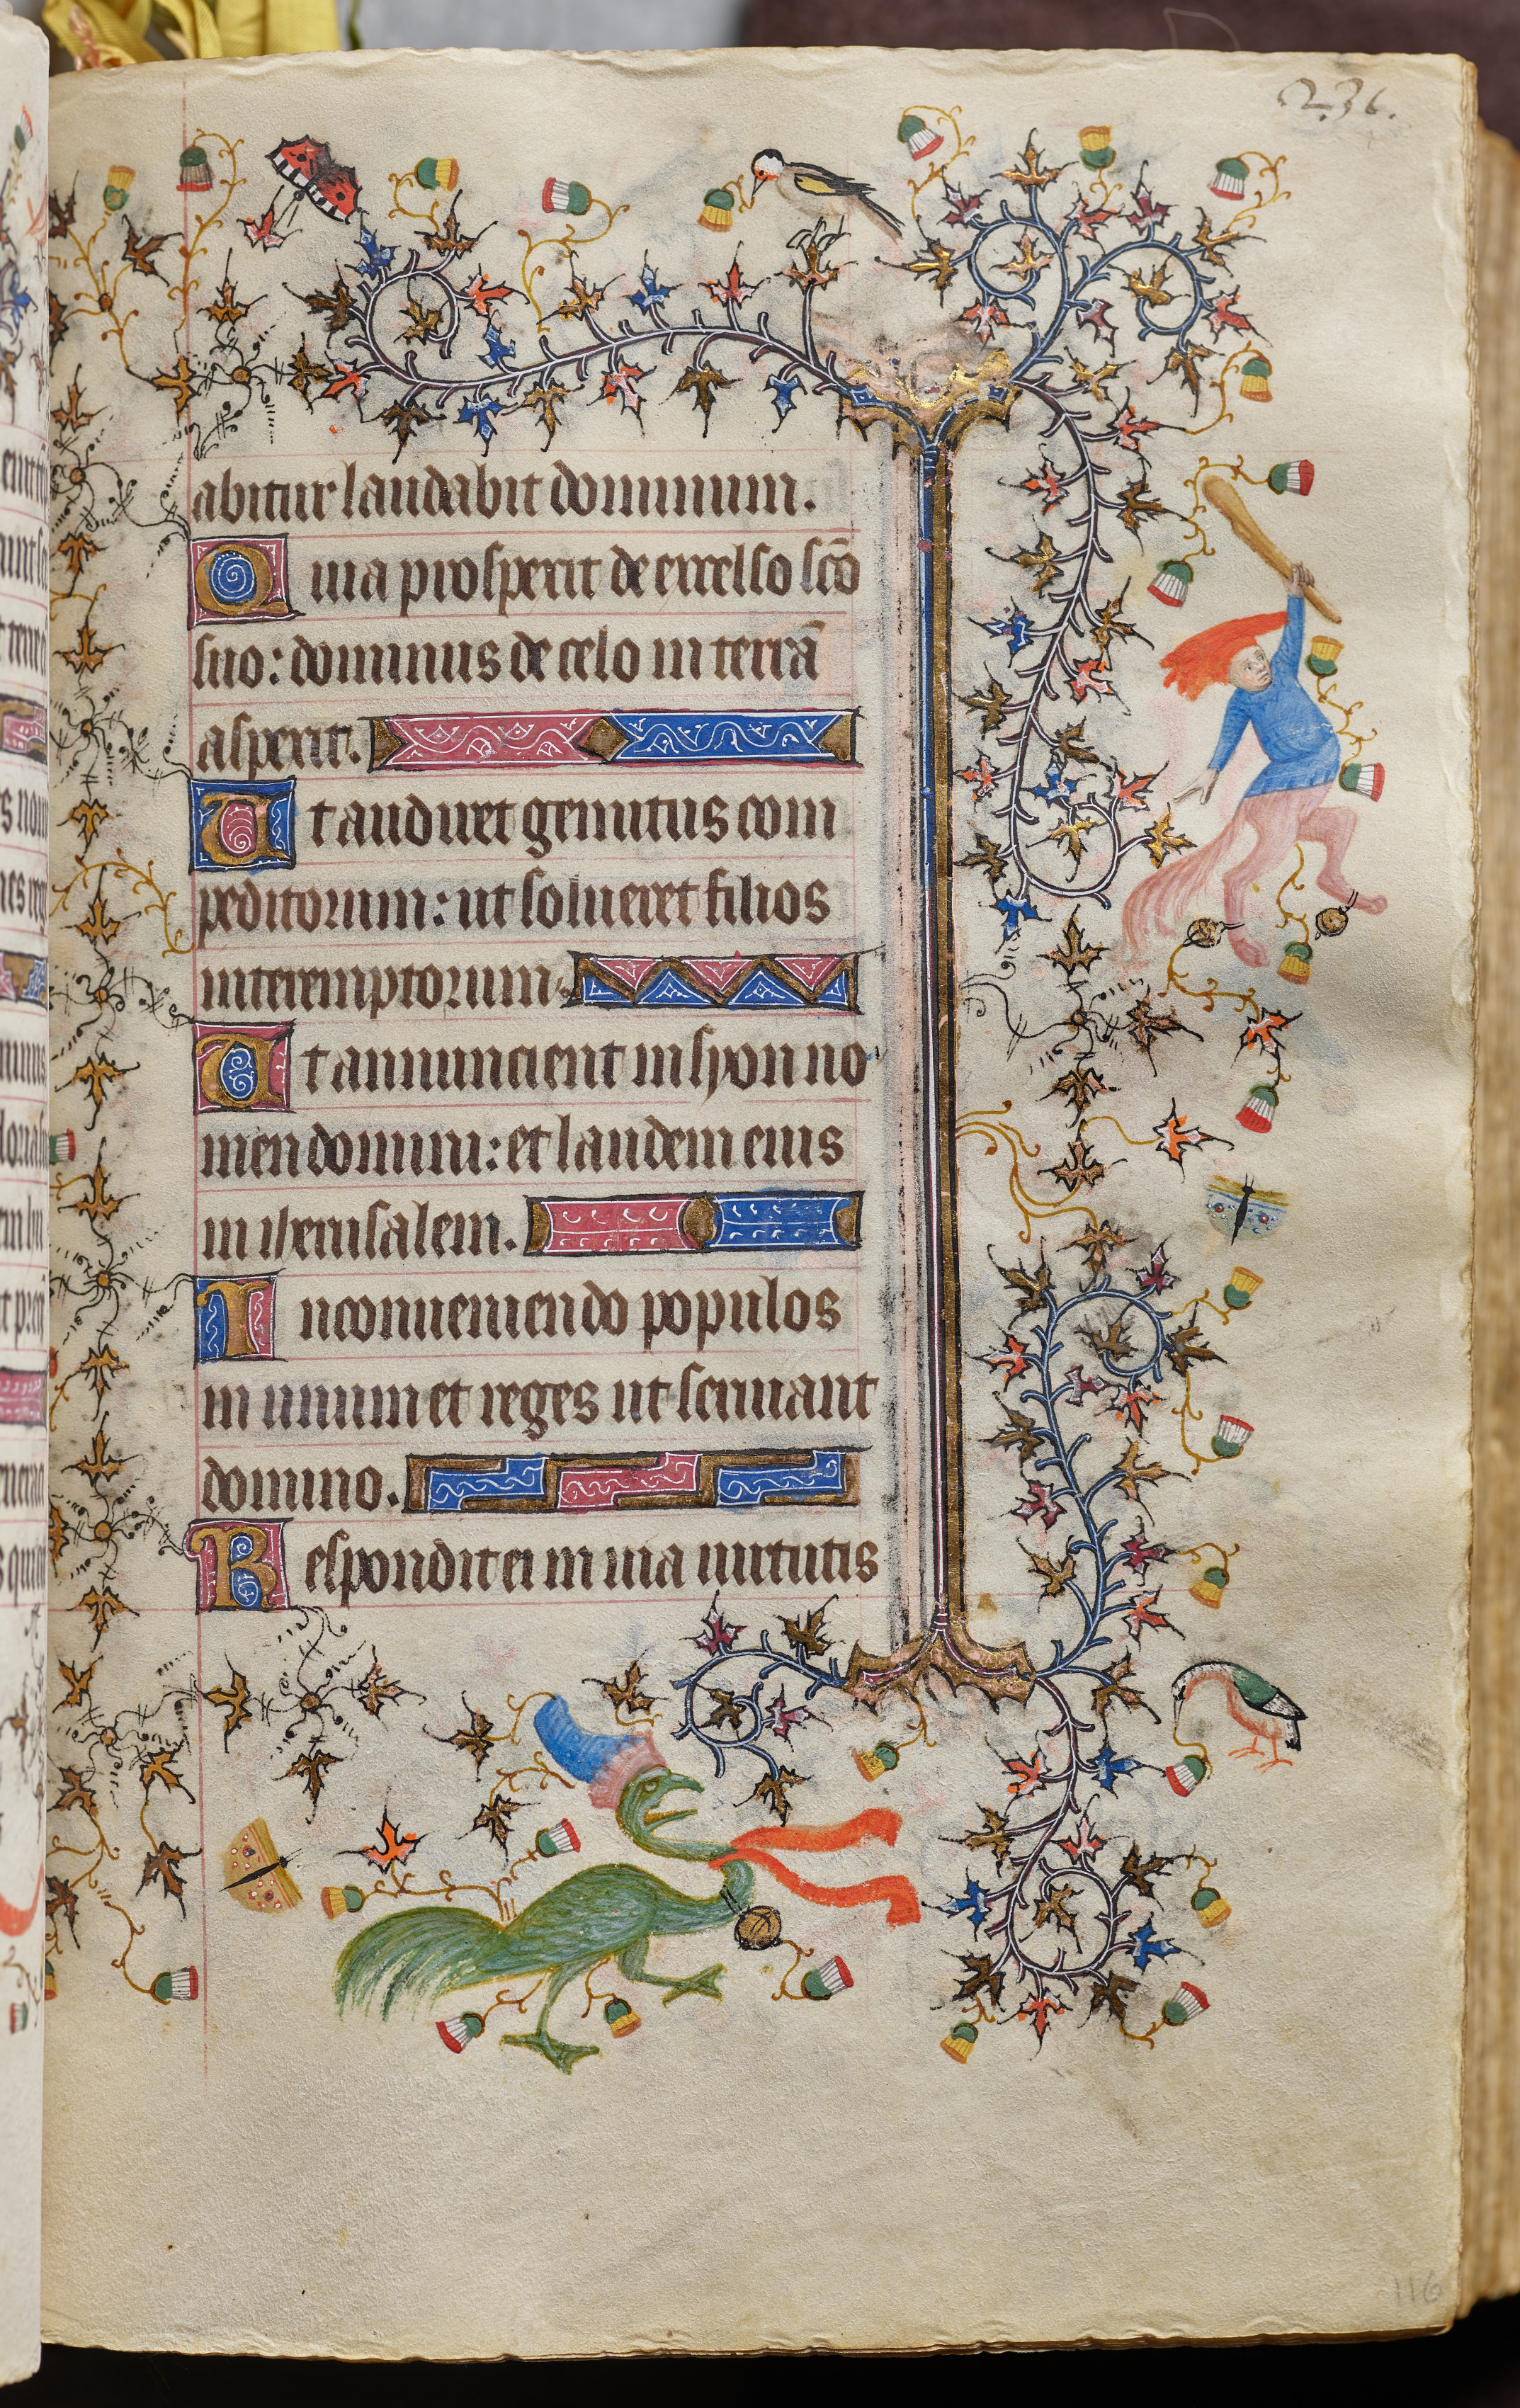 236.
abitur laudabit dominum.
Quia prosperit de excelso sc̄o
suo: dominus de celo in terrā
asperit.
Ut audiret gemitus com
peditorum: ut solueret filios
interemptorum.
Ut annuncient in syon no
men domini: et laudem eius
in iherusalem.
In conueniendo populos
in unum et reges ut seruiant
domino.
Respondit ei in uia uirtutis
116